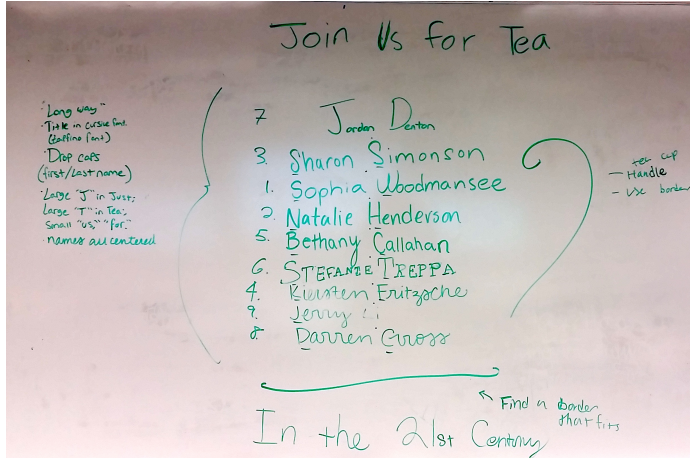 Join Us for Tea
"Long way"
· Title in cursive font
(zaffino font)
· Drop caps
(first/last name)
· Large "J" in Just;
Large "T" in Tea;
Small "us," "for."
· names all centered
7 Jordan Denton
3. Sharon Simonson
1. Sophia Woodmansee
2. Natalie Henderson
5. Bethany Callahan
6. STEFANIE TREPPA
4. Kiersten Fritzsche
9. Jerry Li
8. Darren Gross
tea cup
- Handle
- Use border
Find a border
that fits
In the 21st Century